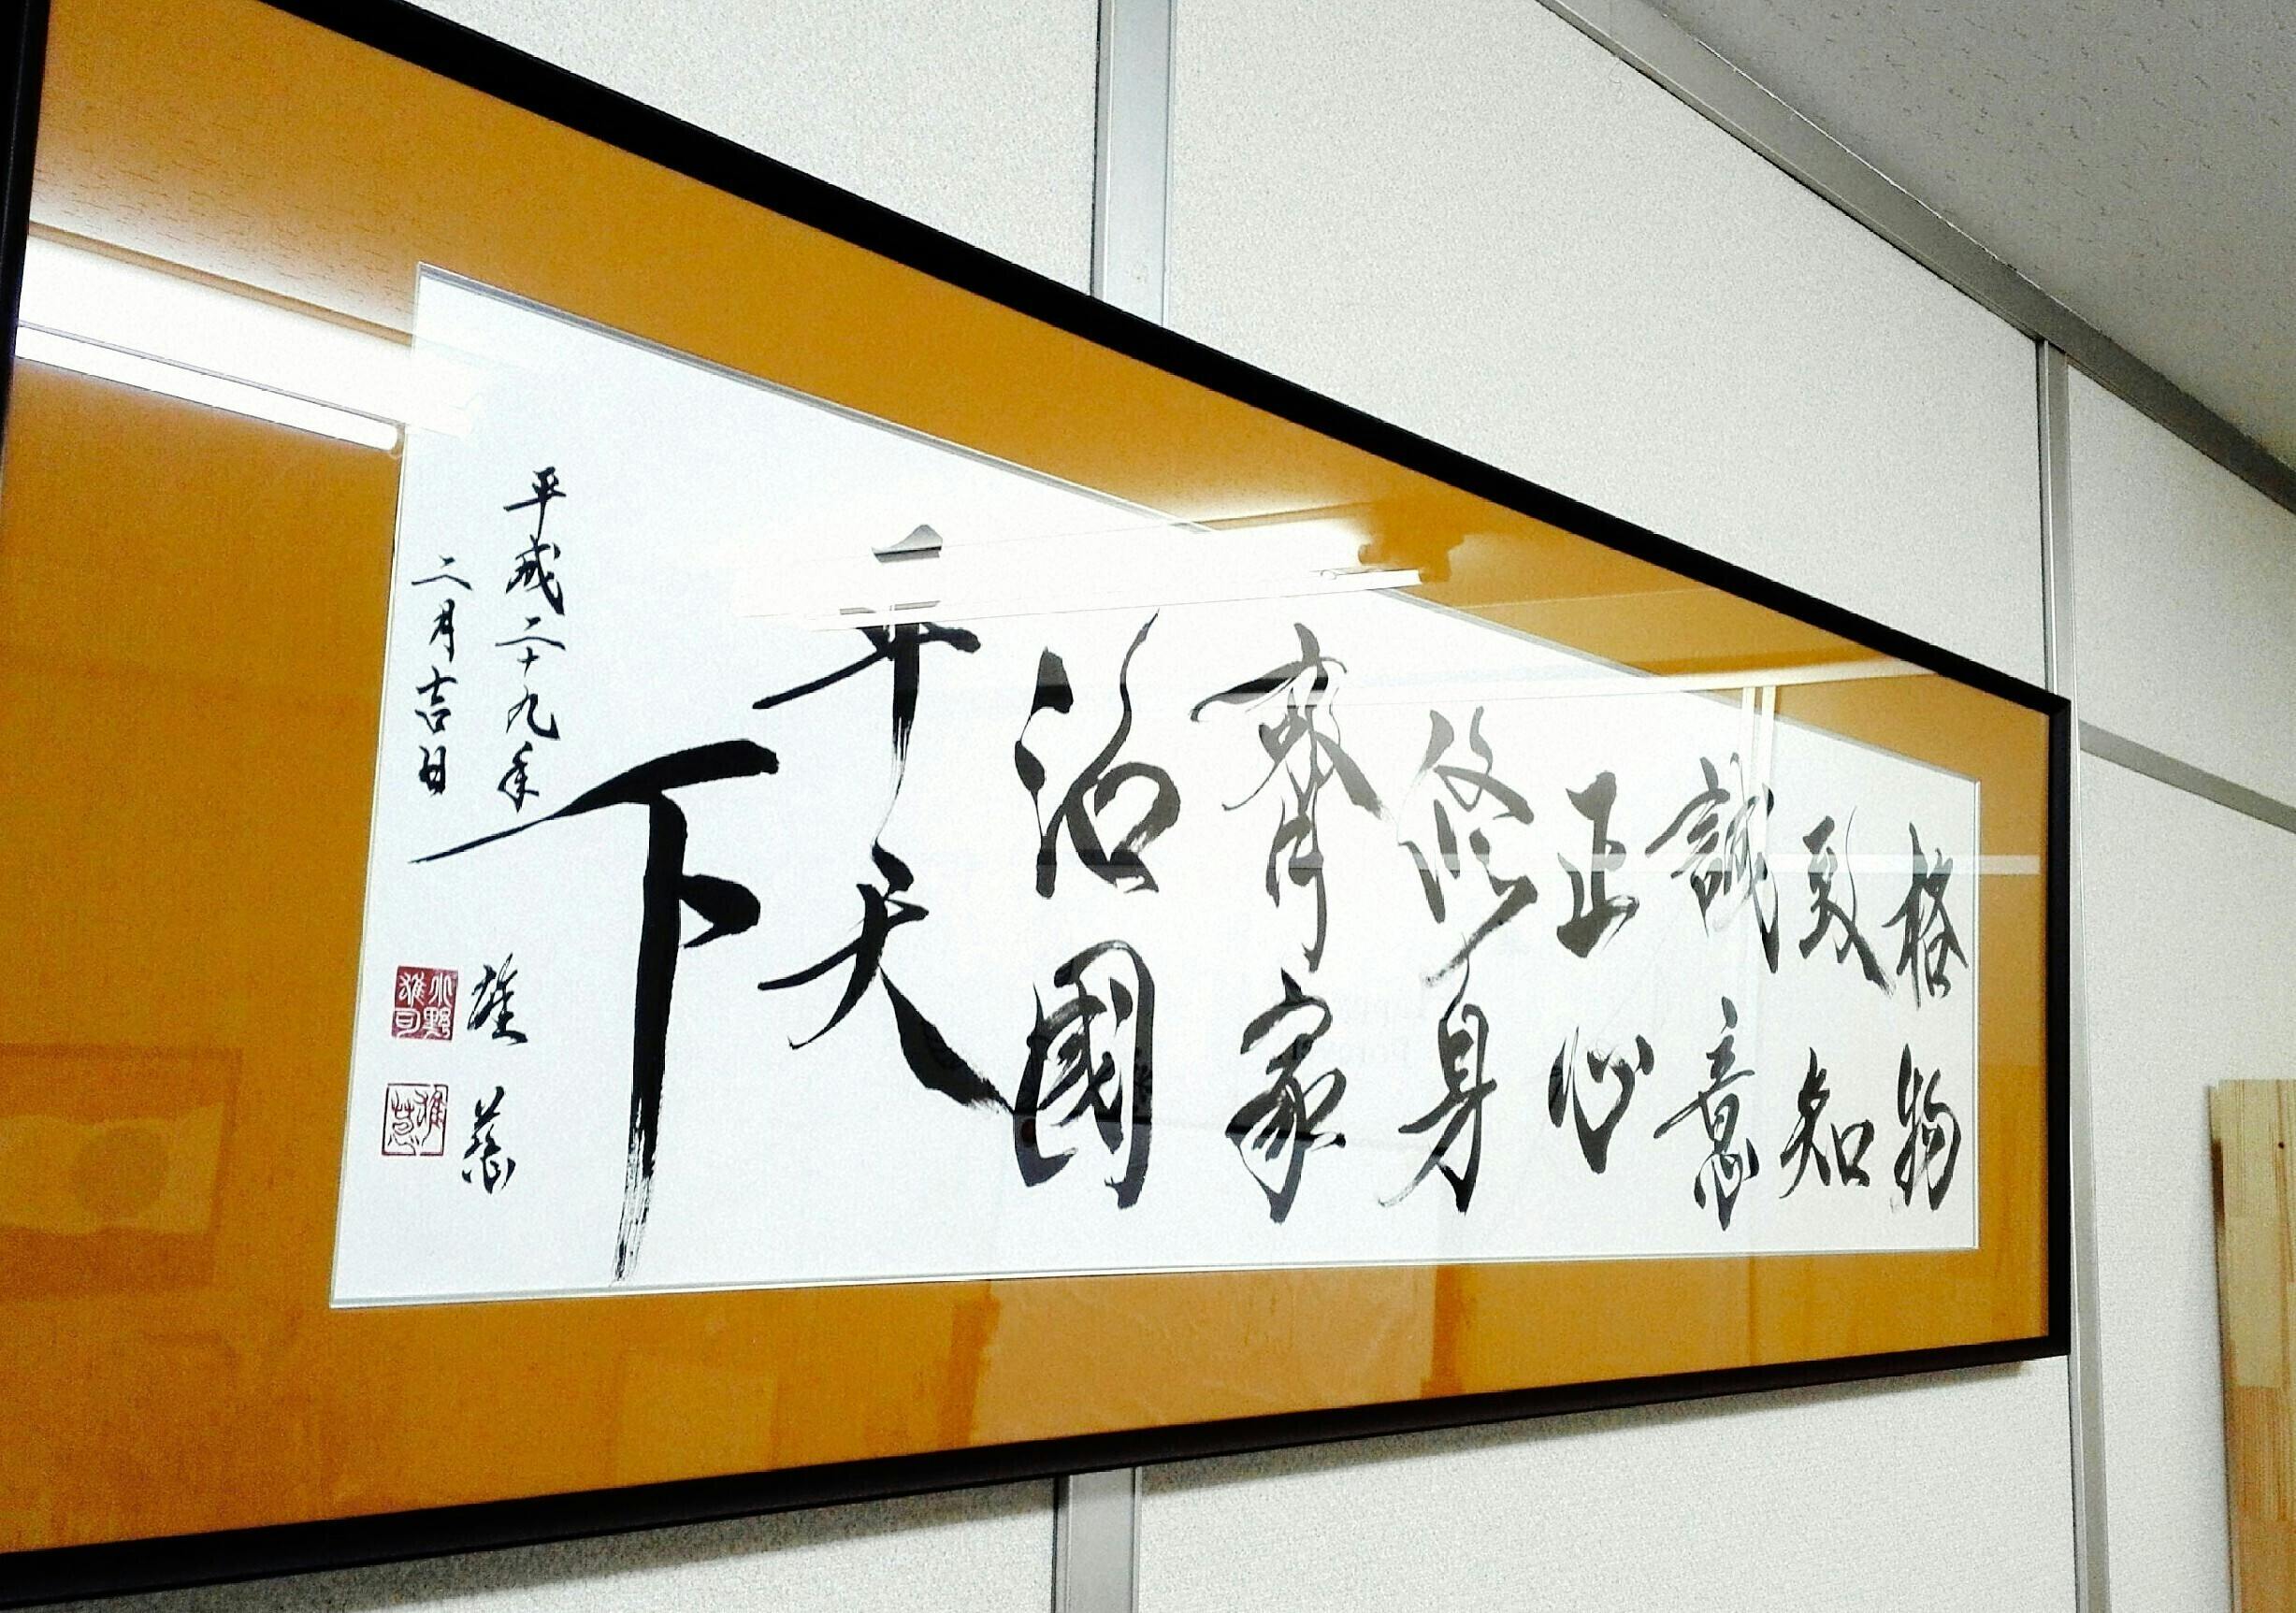 格物
致知
誠意
正心
修身
齊家
治國
平天
下
平成二十九年
二月吉日